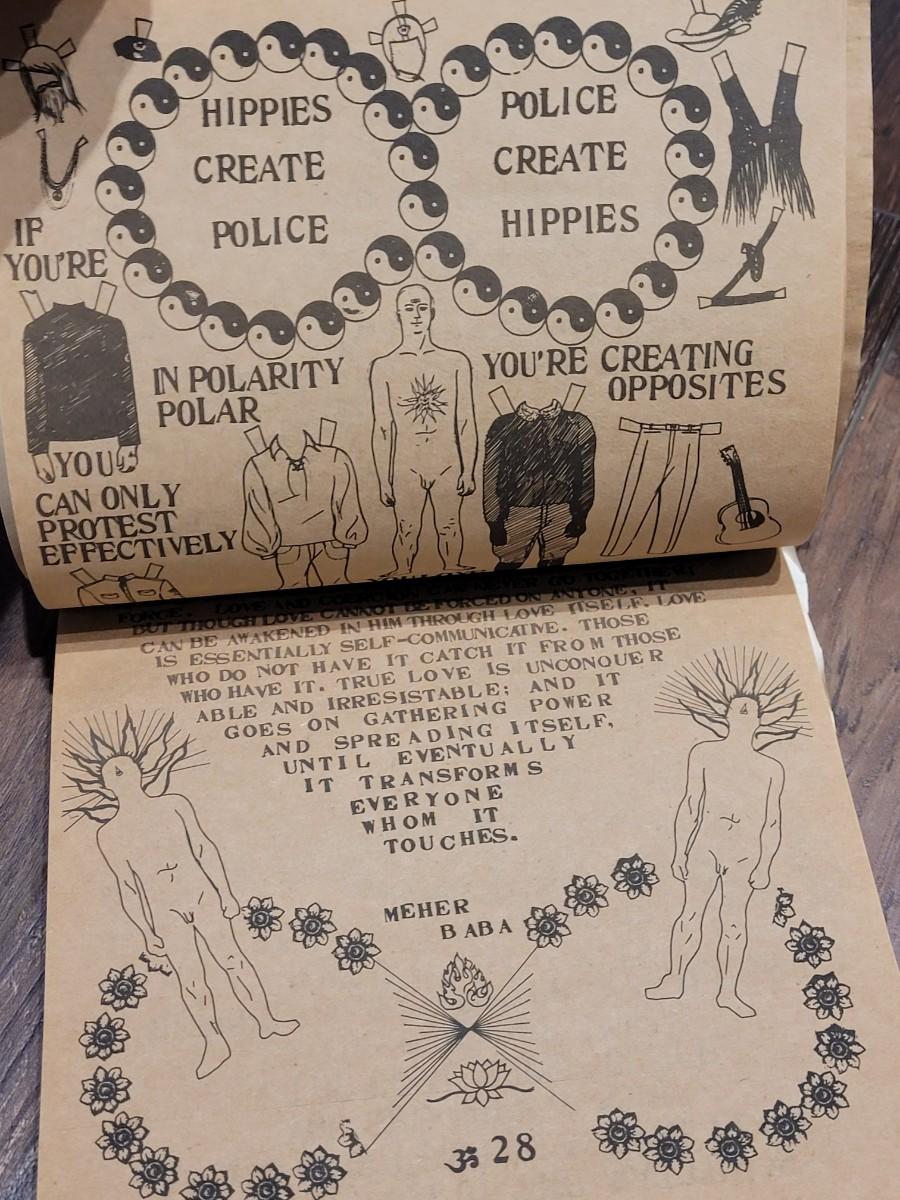 HIPPIES
CREATE
POLICE
POLICE
CREATE
HIPPIES
IF
YOU'RE
IN POLARITY
POLAR
YOU'RE CREATING
OPPOSITES
YOU
CAN ONLY
PROTEST
EFFECTIVELY
FORCE. LOVE AND COERCION CAN NEVER GO TOGETHER;
BUT THOUGH LOVE CANNOT BE FORCED ON ANYONE, IT
CAN BE AWAKENED IN HIM THROUGH LOVE ITSELF. LOVE
IS ESSENTIALLY SELF-COMMUNICATIVE. THOSE
WHO DO NOT HAVE IT CATCH IT FROM THOSE
WHO HAVE IT. TRUE LOVE IS UNCONQUER
ABLE AND IRRESISTABLE; AND IT
GOES ON GATHERING POWER
AND SPREADING ITSELF,
UNTIL EVENTUALLY
IT TRANSFORMS
EVERYONE
WHOM IT
TOUCHES.
MEHER
BABA
ॐ 28